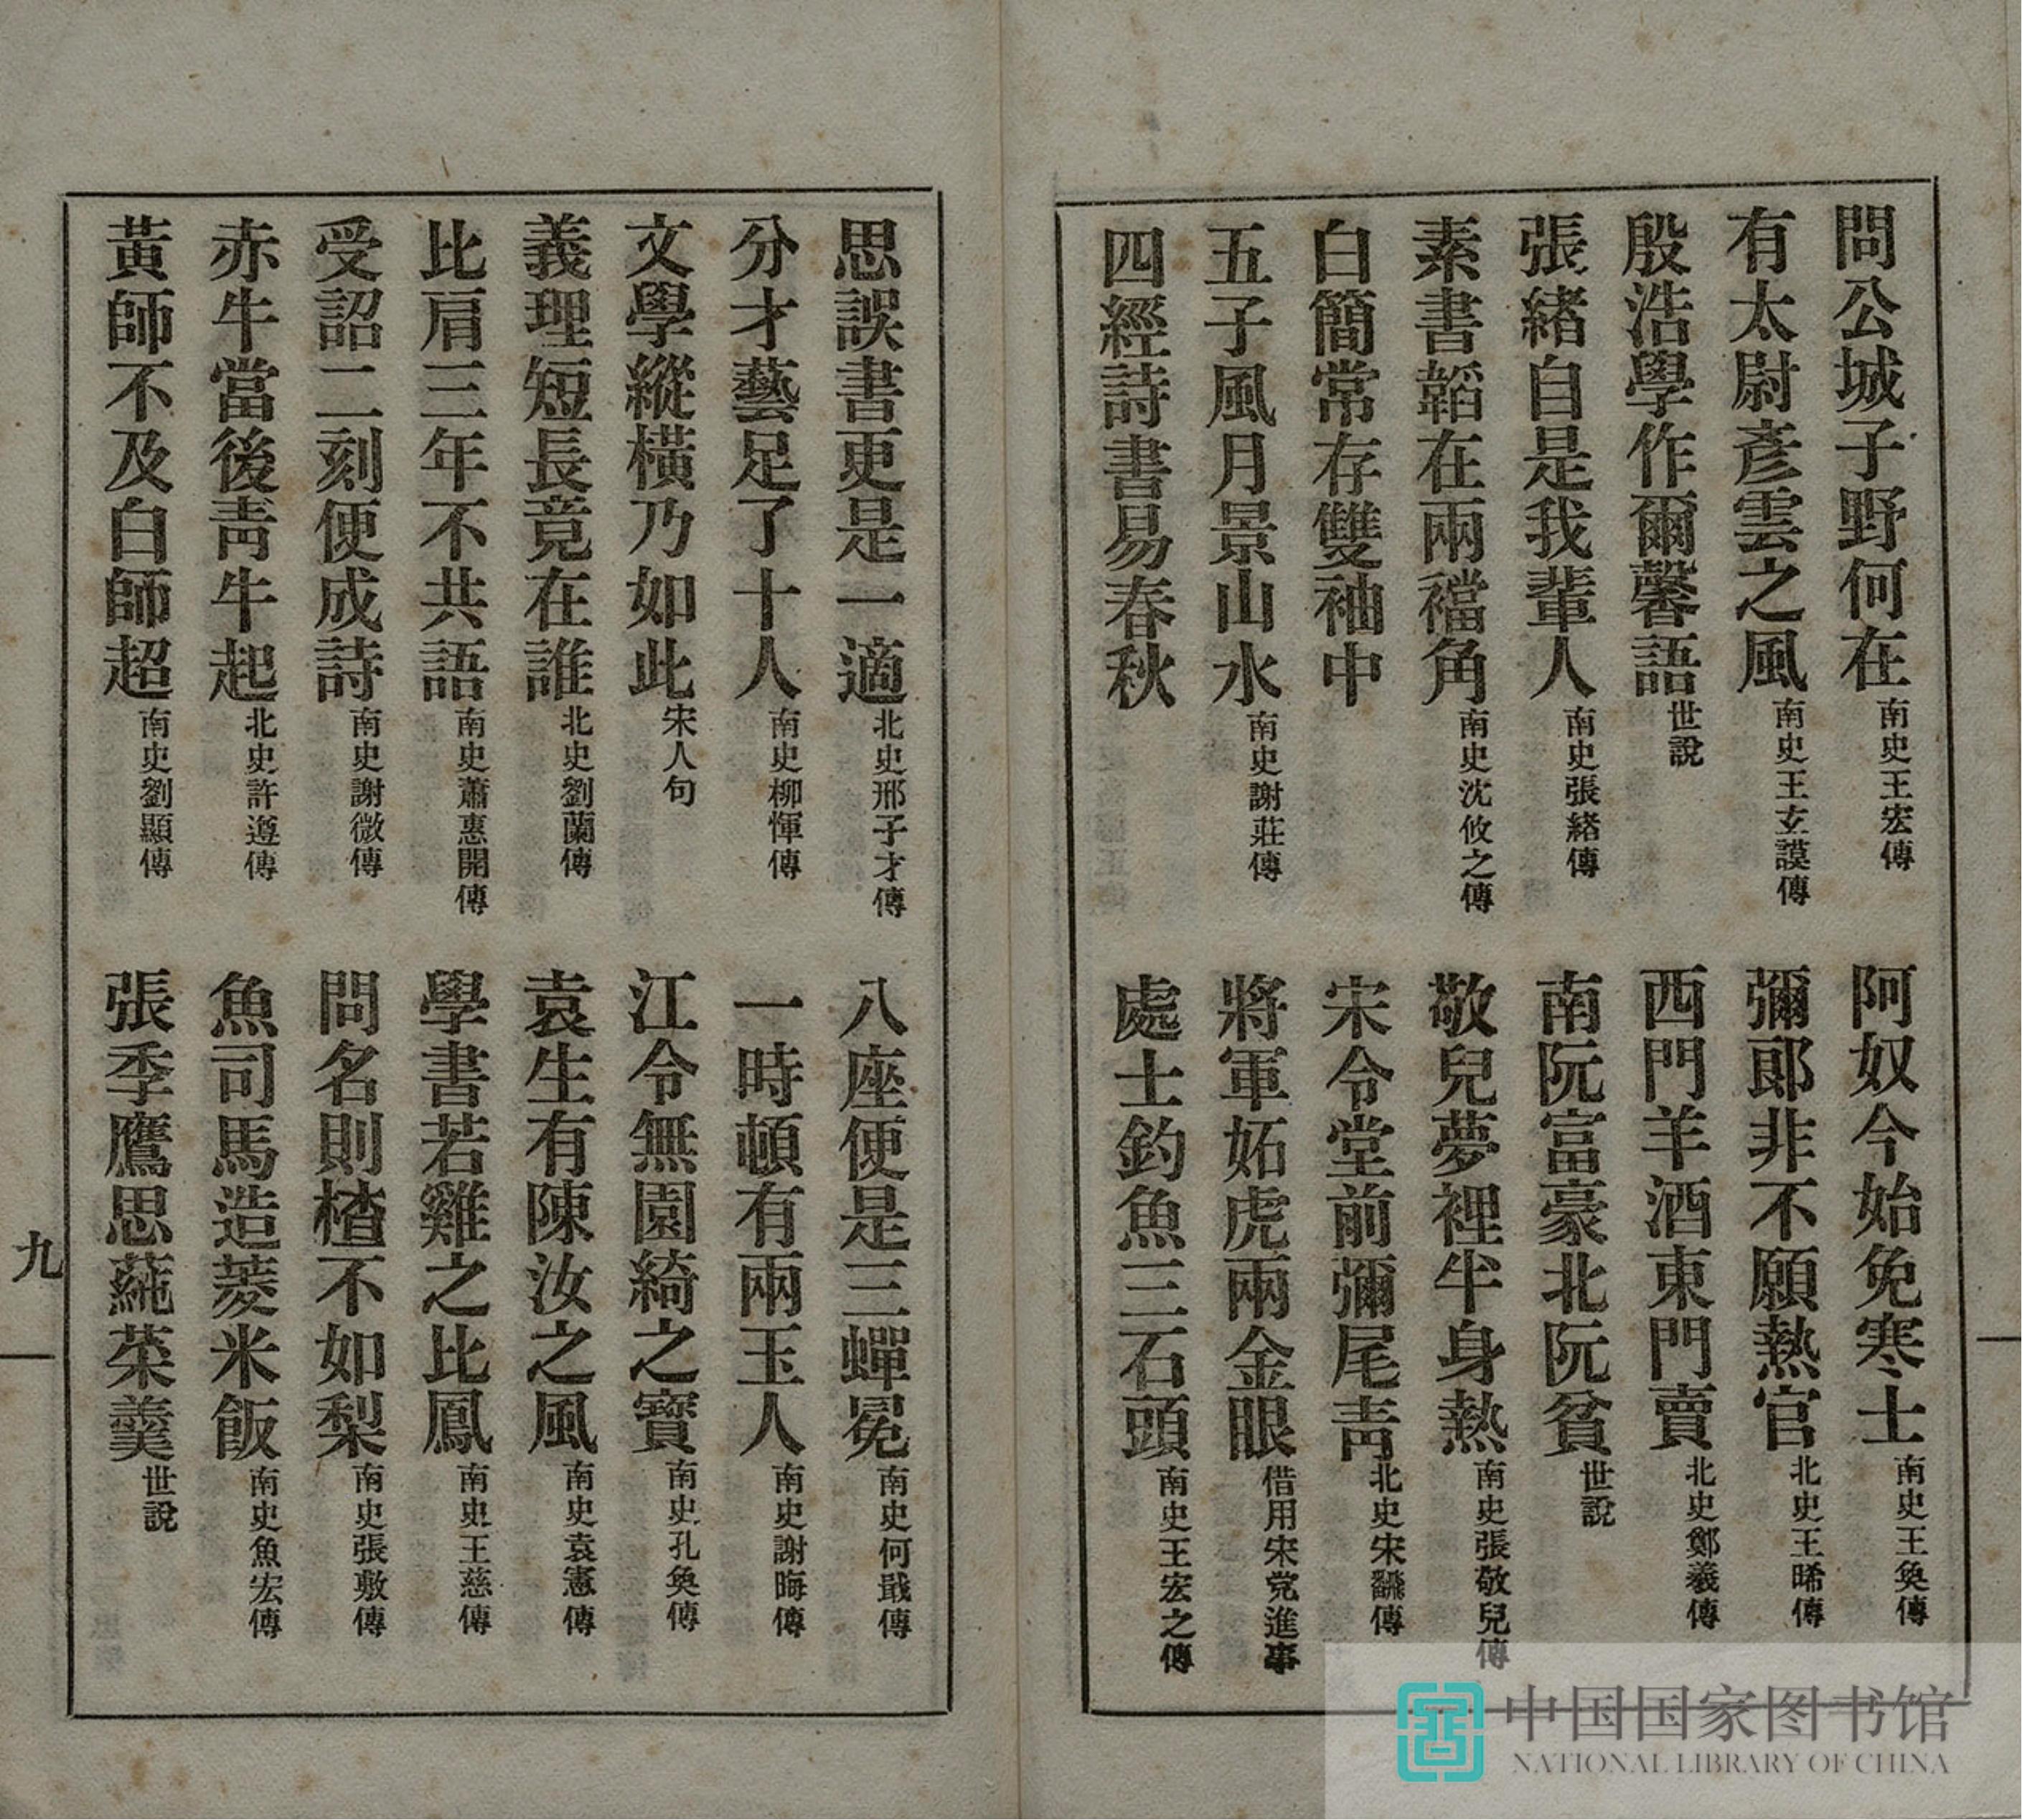 問公城子野何在南史王宏傳
阿奴今始免寒士南史王奐傳
有太尉彥雲之風南史王玄謨傳
彌郎非不願熱官北史王晞傳
殷浩學作爾馨語世說
西門羊酒東門賣北史鄭羲傳
張緒自是我輩人南史張緒傳
南阮富豪北阮貧世說
素書韜在兩襠角南史沈攸之傳
敬兒夢裡半身熱南史張敬兒傳
白簡常存雙袖中
宋令堂前彌尾靑北史宋飜傳
五子風月景山水南史謝莊傳
將軍妬虎兩金眼借用宋党進事
四經詩書易春秋
處士釣魚三石頭南史王宏之傳
思誤書更是一適北史邢子才傳
八座便是三蟬冕南史何戢傳
分才藝足了十人南史柳惲傳
一時頓有兩玉人南史謝晦傳
文學縱橫乃如此宋人句
江令無園綺之實南史孔奐傳
義理短長竟在誰北史劉蘭傳
袁生有陳汝之風南史袁憲傳
比肩三年不共語南史蕭惠開傳
學書若雞之比鳳南史王慈傳
受詔二刻便成詩南史謝微傳
問名則楂不如梨南史張敷傳
赤牛當後靑牛起北史許遵傳
魚司馬造菱米飯南史魚宏傳
黃師不及白師超南史劉顯傳
張季鷹思蒓菜羹世說
九
中国国家图书馆
NATIONAL LIBRARY OF CHINA